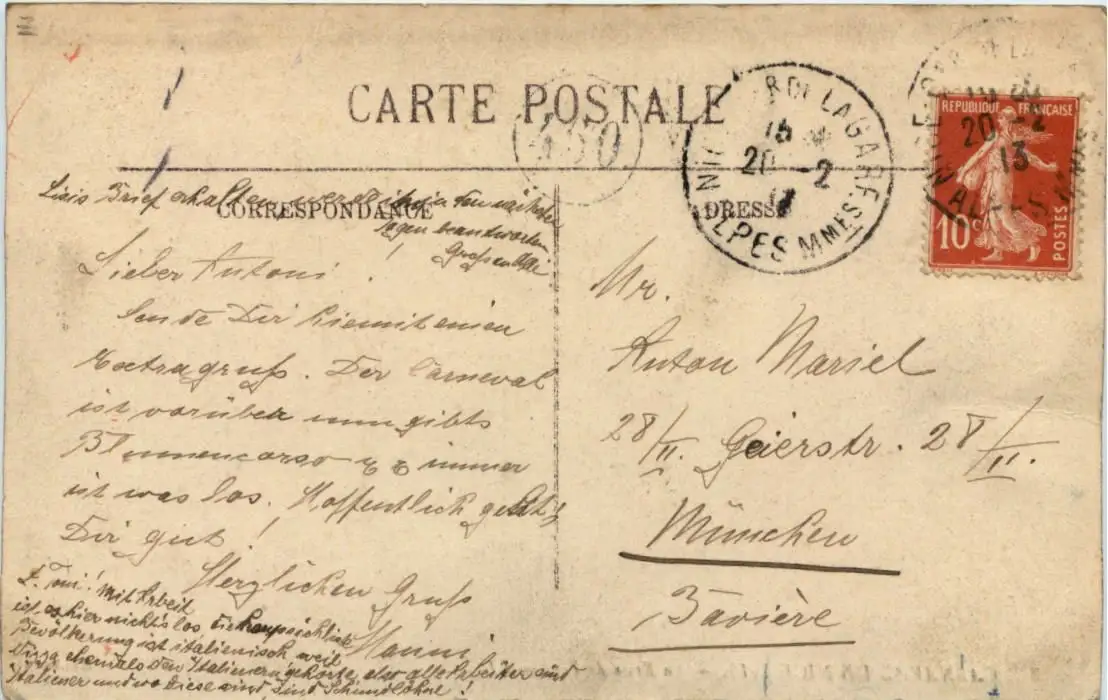 CARTE POSTALE
CORRESPONDANCE
Lisis Brief erhalten werde ihn in den nächsten
Tagen beantworten
!
Lieber Antoni!
Sende Dir hiemit einen
Extragruß. Der Carneval
ist vorüber nun gibts
Blumencorso etc immer
ist was los. Hoffentlich geht's
Dir gut!
Herzlichen Gruß
Manni
L. Toni! Mit Arbeit
ist es hier nichts los die hauptsächliche
Bevölkerung ist italienisch weil
Nizza ehemals den Italienern gehörte, also alle Arbeiter sind
Italiener und wo diese sind, sind Schundlöhne!
450
LAGARE
20 -2
13
ALPES MMES
REPUBLIQUE FRANÇAISE
10c
POSTES
20 -2
13
Mr.
Anton Mariel
28/II. Geierstr. 28/II.
München
Bavière